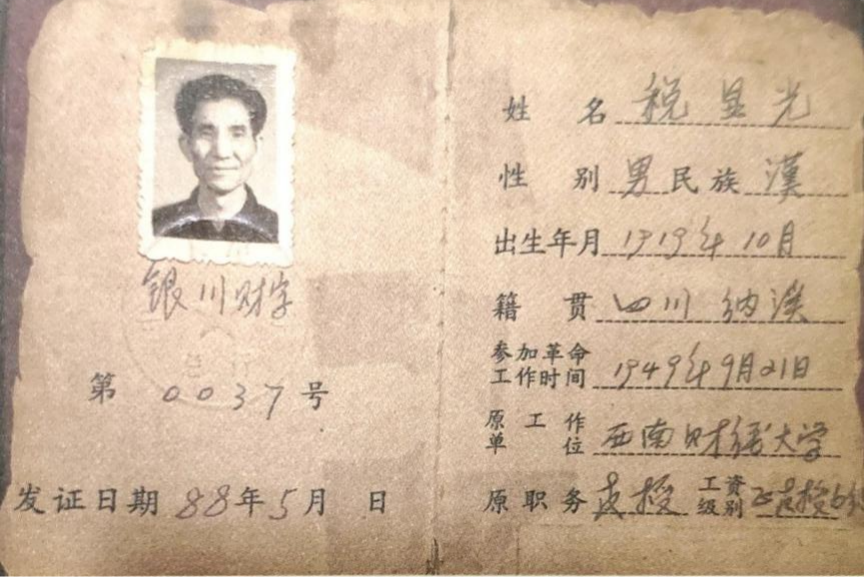 银川财字
第 0037 号
发证日期 88年5月 日
姓 名 税显光
性 别 男 民族 漢
出生年月 1919年10月
籍 贯 四川 纳溪
参加革命工作时间 1949年9月21日
原工作单位 西南财经大学
原职务 教授 工资级别 正教授6级